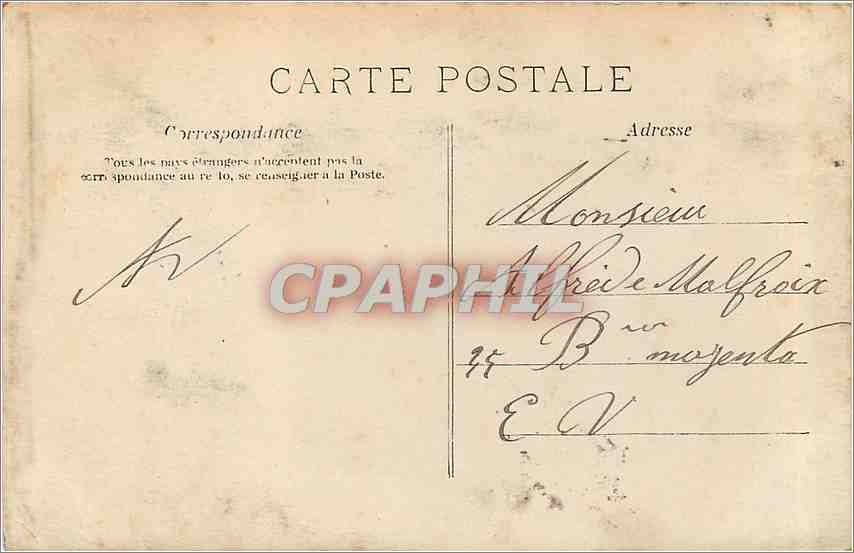 CARTE POSTALE
Correspondance
Tous les pays étrangers n'acceptent pas la
correspondance au recto, se renseigner a la Poste.
Adresse
Monsieur
Alfred Malfroix
B magenta
E. V
CPAPHIL